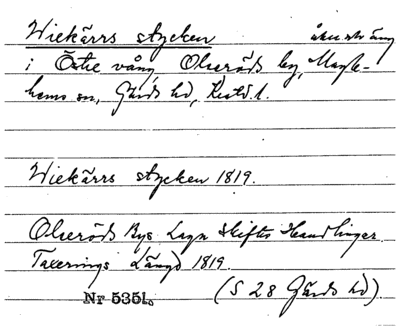 Wiekärrs stycken åker o äng
i Östre vång, Olseröds by, Magle-
hems sn, Gärds hd, Krstd. l.
Wiekärrs stycken 1819.
Olseröds Bys Laga Skiftes Handlingar.
Taxerings Längd 1819.
Nr 5351. (S 28 Gärds hd)